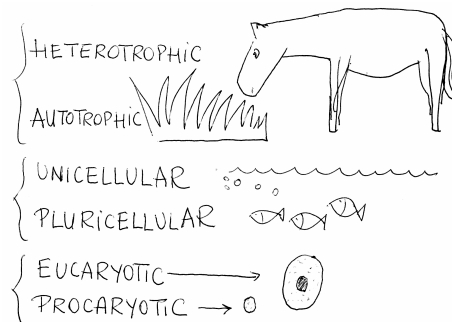 HETEROTROPHIC
AUTOTROPHIC
UNICELLULAR
PLURICELLULAR
EUCARYOTIC
PROCARYOTIC